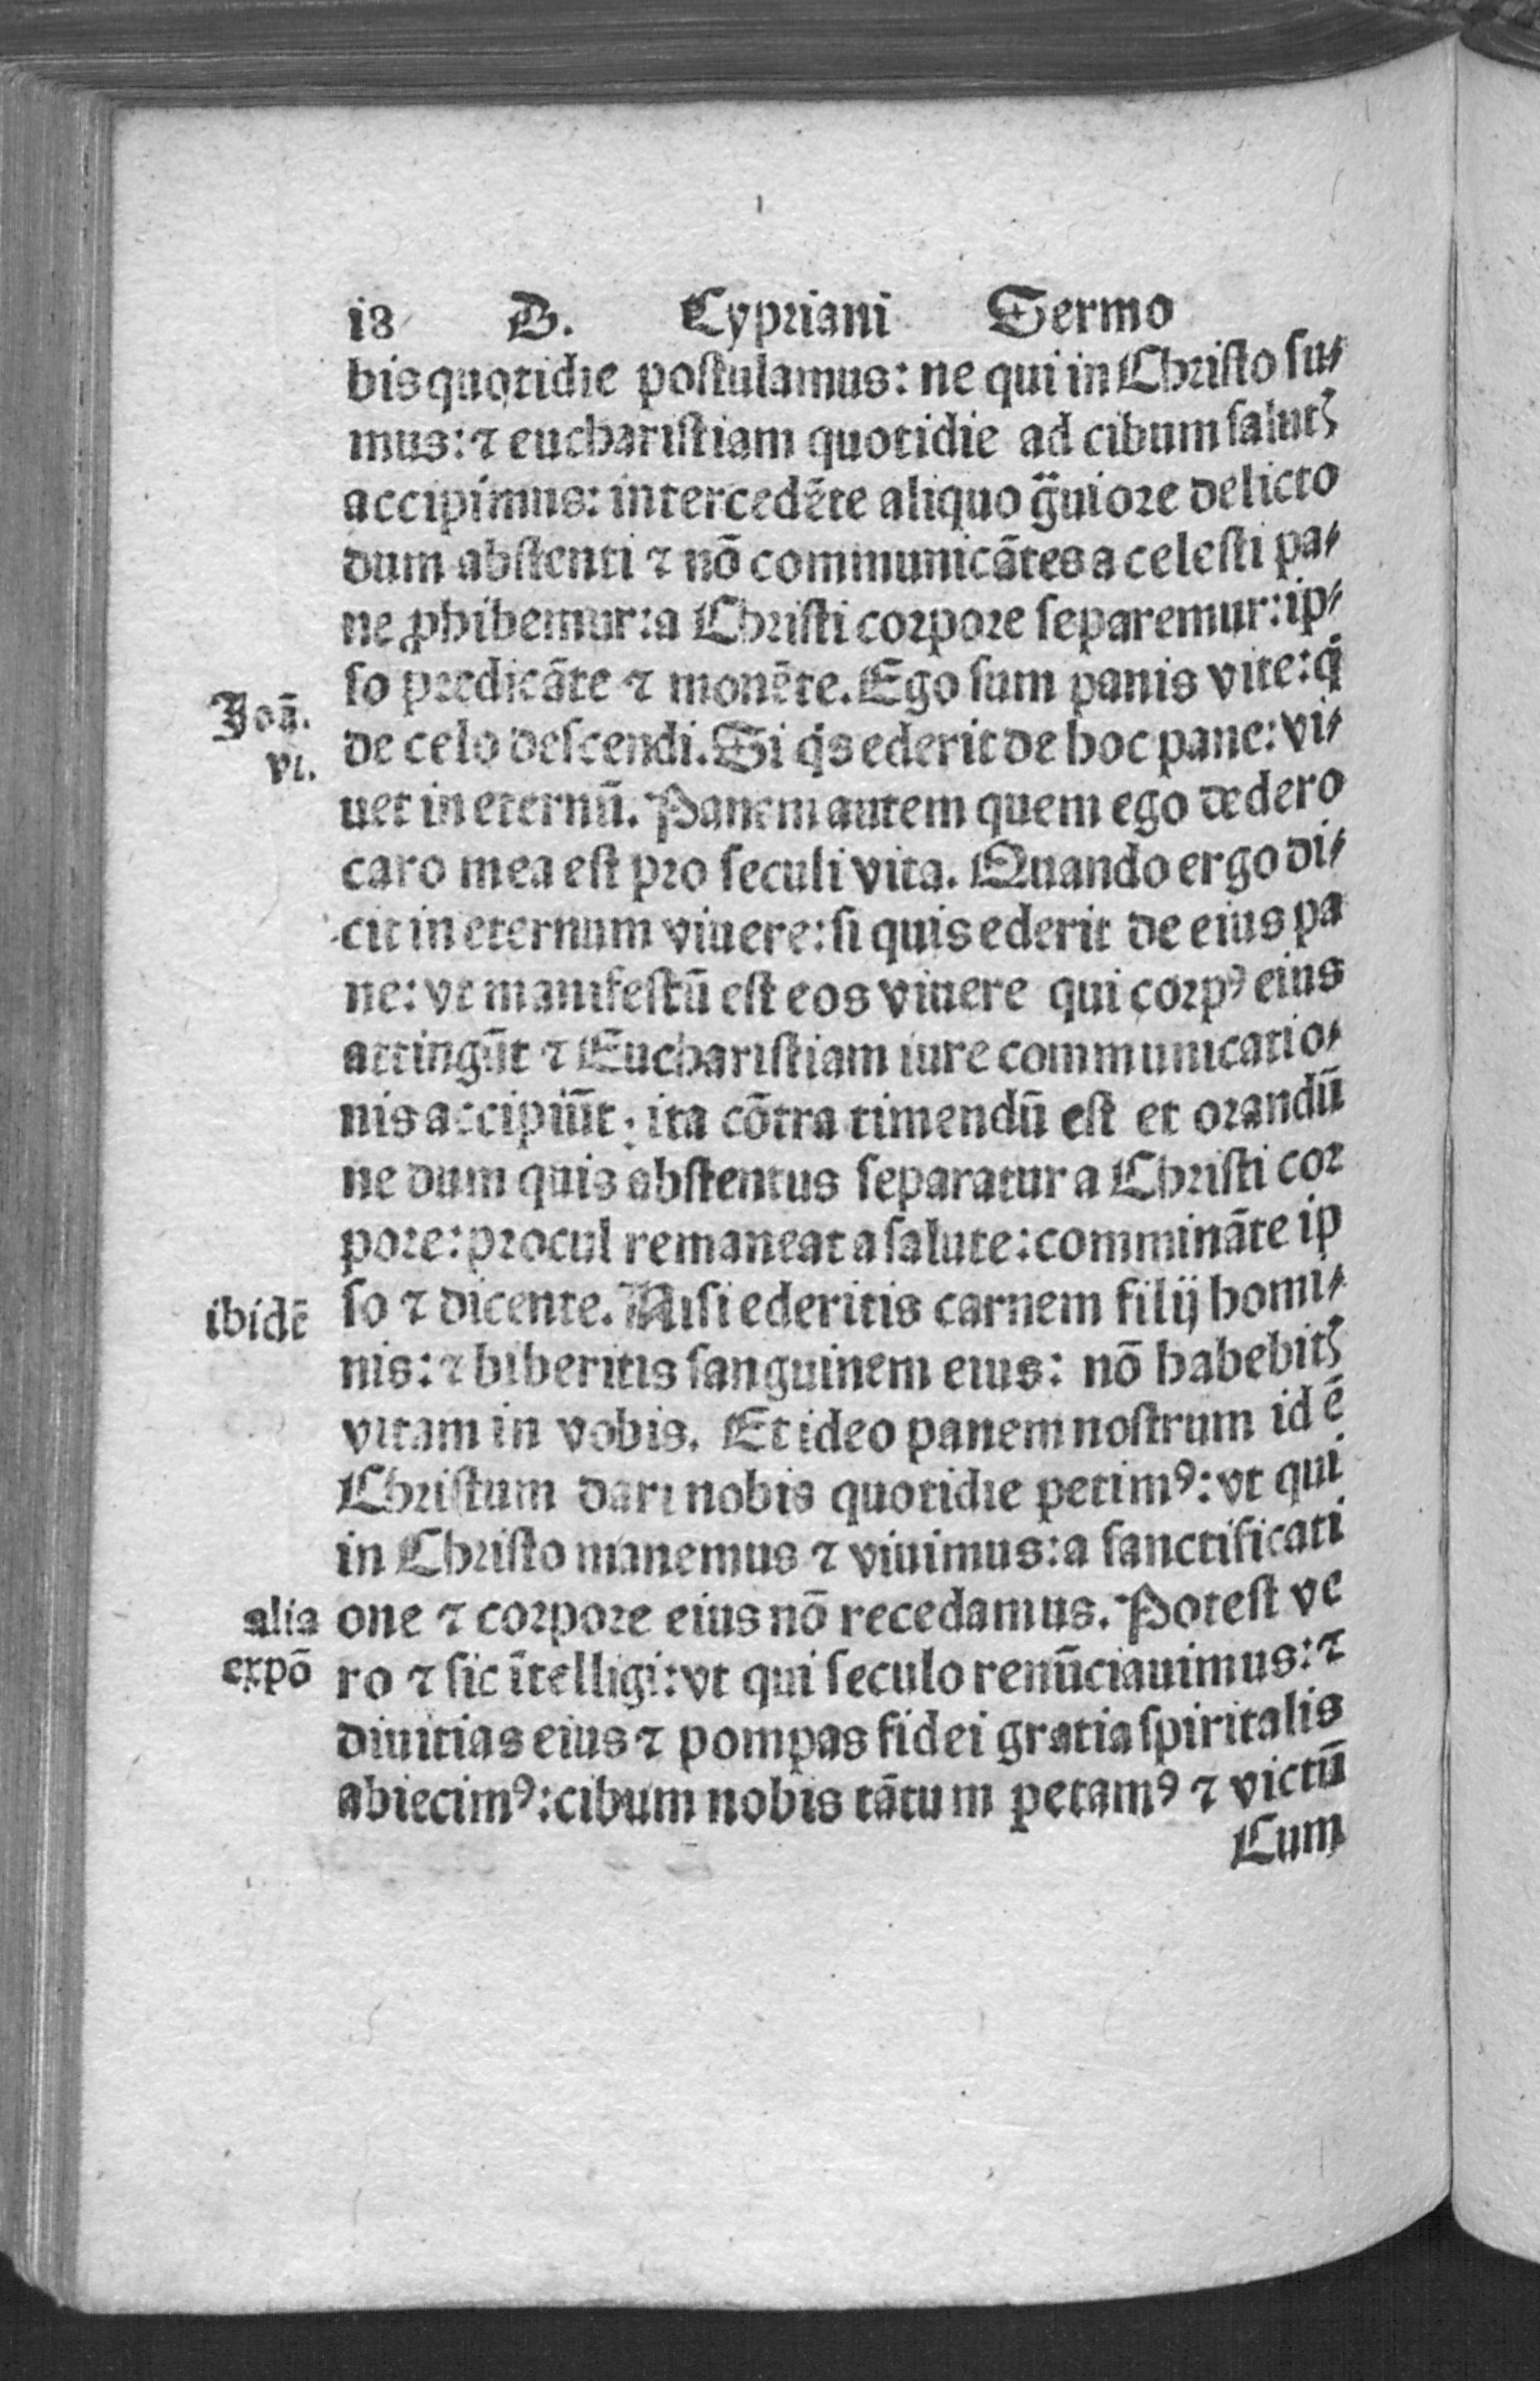 i8 D. Cypriani Sermo
bis quotidie postulamus: ne qui in Christo su⸗
mus: ⁊ eucharistiam quotidie ad cibum salutꝭ
accipimus: intercedēte aliquo g̈uiore delicto
dum abstenti ⁊ nō communicātes a celesti pa⸗
ne ꝓhibemur: a Christi corpore separemur: ip⸗
so predicāte ⁊ monēte. Ego sum panis vite: q̇
Joā.
vi.
de celo descendi. Si q̇s ederit de hoc pane: vi⸗
uet in eternū. Panem autem quem ego dedero
caro mea est pro seculi vita. Quando ergo di⸗
cit in eternum viuere: si quis ederit de eius pa
ne: vt manifestū est eos viuere qui corpꝰ eius
attingūt ⁊ Eucharistiam iure communicatio⸗
nis accipiūt: ita cōtra timendū est et orandū
ne dum quis abstentus separatur a Christi cor
pore: procul remaneat a salute: commināte ip
ibidē
so ⁊ dicente. Nisi ederitis carnem filij homi⸗
nis: ⁊ biberitis sanguinem eius: nō habebitꝭ
vitam in vobis. Et ideo panem nostrum id ē
Christum dari nobis quotidie petimꝰ: vt qui
in Christo manemus ⁊ viuimus: a sanctificati
alia
expō
one ⁊ corpore eius nō recedamus. Potest ve
ro ⁊ sic ītelligi: vt qui seculo renūciauimus: ⁊
diuitias eius ⁊ pompas fidei gratia spiritalis
abiecimꝰ: cibum nobis tātum petamꝰ ⁊ victū
Cum